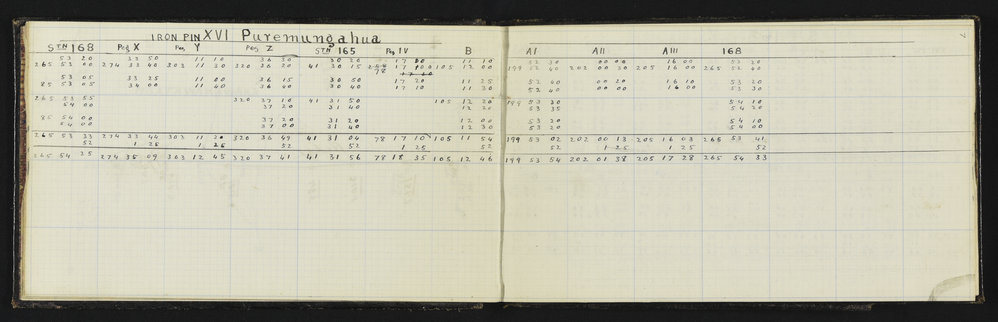 IRON PIN XVI Puremungahua
STN 168 Peg X Peg Y Peg Z STN 165 Peg IV B AI AII AIII 168
53 20 33 50 11 10 36 30 30 20 17 00 11 10 52 30 00 00 16 00 53 20
265 53 00 274 33 40 303 11 30 320 36 20 41 30 15 17 00 105 12 00 199 52 40 202 00 30 205 16 00 265 52 40
78 17 60
53 05 33 25 11 00 36 15 30 50 17 20 11 25 52 40 00 20 16 10 53 20
85 53 05 34 00 11 40 36 40 30 40 17 10 11 30 52 40 00 00 16 00 53 30
265 53 55 320 37 10 41 31 50 105 12 20 199 53 30 54 10
54 00 37 20 31 40 12 20 53 35 54 20
85 54 00 37 20 31 20 12 00 53 20 54 10
54 00 37 00 31 40 12 30 53 20 54 00
265 53 33 274 33 44 303 11 20 320 36 49 41 31 04 78 17 10 105 11 54 199 53 02 202 00 13 205 16 03 265 53 41
52 1 25 1 25 52 52 1 25 52 52 1 25 1 25 52
265 54 25 274 35 09 303 12 45 320 37 41 41 31 56 78 18 35 105 12 46 199 53 54 202 01 38 205 17 28 265 54 33